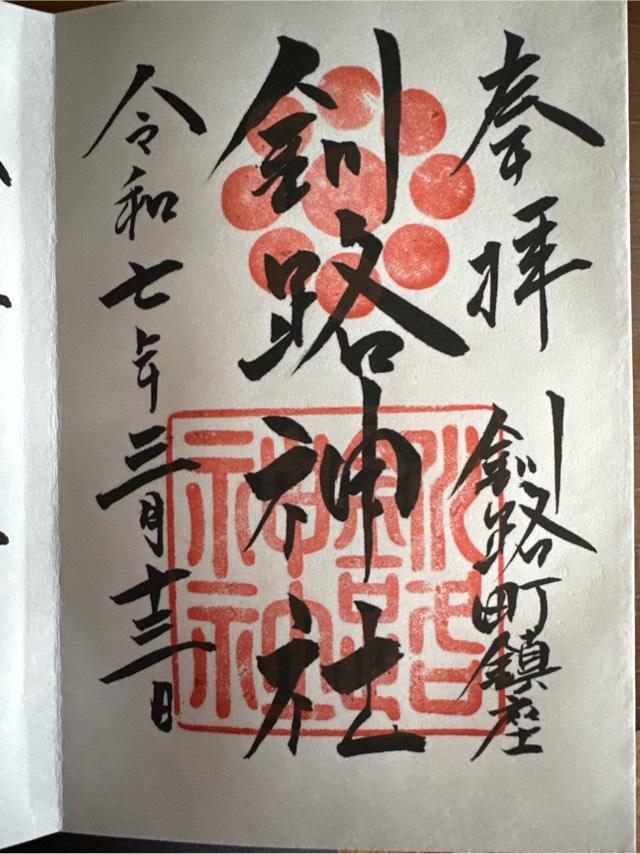 奉拝 釧路町鎮座
釧路神社
令和七年三月十三日
釧路
神社